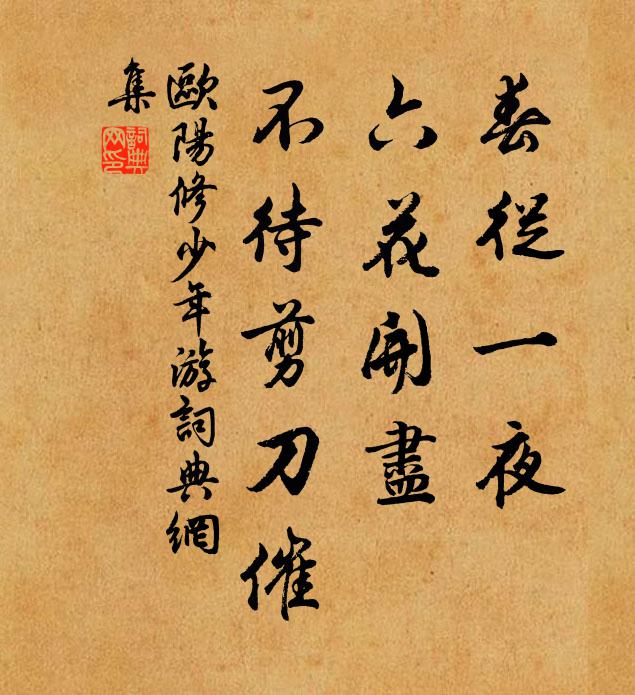 春從一夜
六花開盡
不待剪刀催
歐陽修少年游詞典網
集
詞典
网印